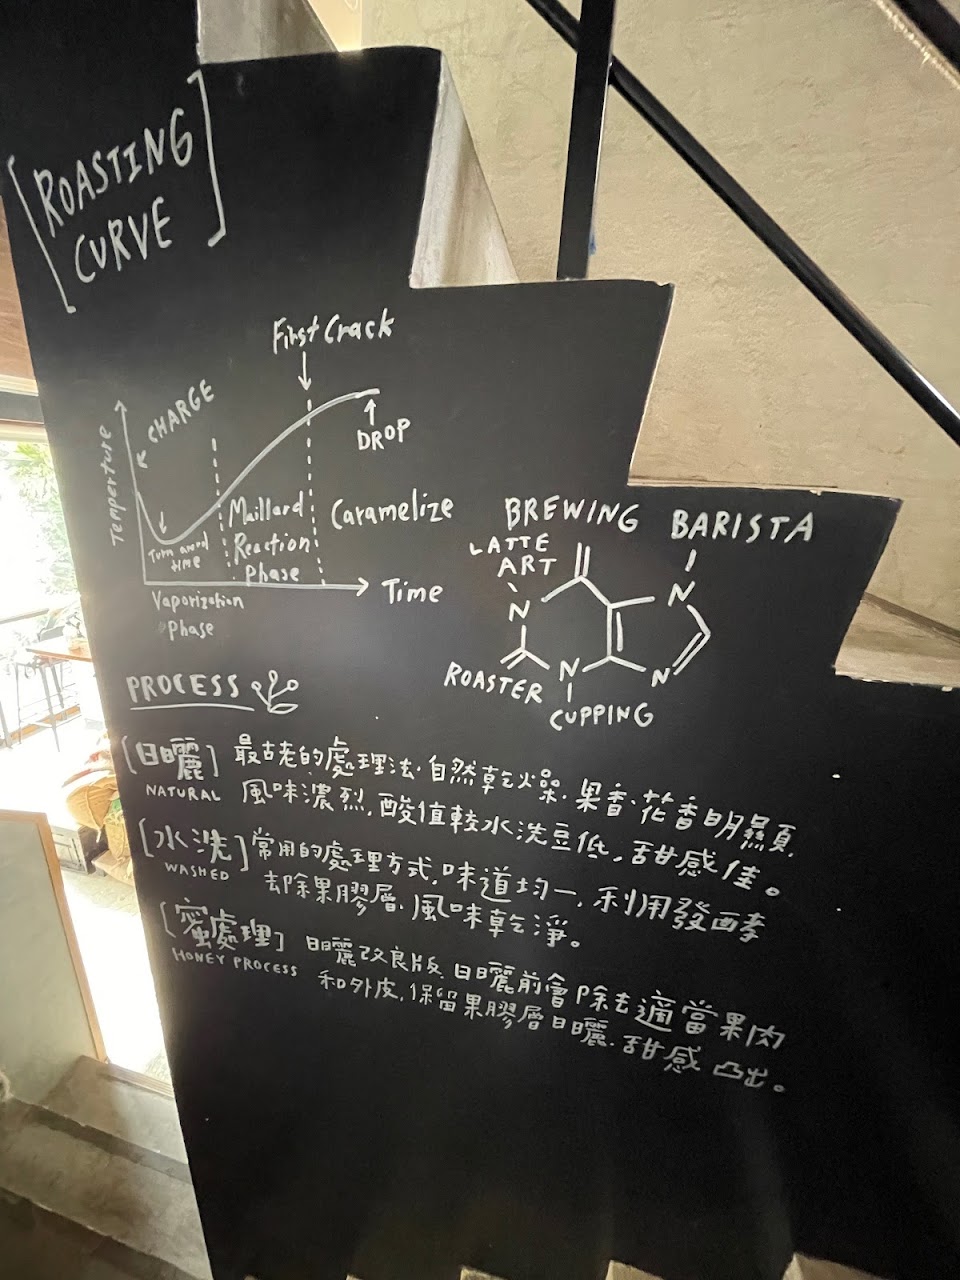 [ROASTING
CURVE]
First Crack
CHARGE
DROP
Temperture
Turn around
time
Maillard
Reaction
Phase
Caramelize
Time
Vaporization
Phase
BREWING
BARISTA
LATTE
ART
N
N
N
N
ROASTER
CUPPING
PROCESS
[日曬] 最古老的處理法.自然乾燥.果香.花香明顯,
NATURAL 風味濃烈,酸值較水洗豆低,甜感佳。
[水洗] 常用的處理方式,味道均一,利用發酵
WASHED 去除果膠層.風味乾淨。
[蜜處理] 日曬改良版.日曬前會除去適當果肉
HONEY PROCESS 和外皮,保留果膠層日曬.甜感凸出。